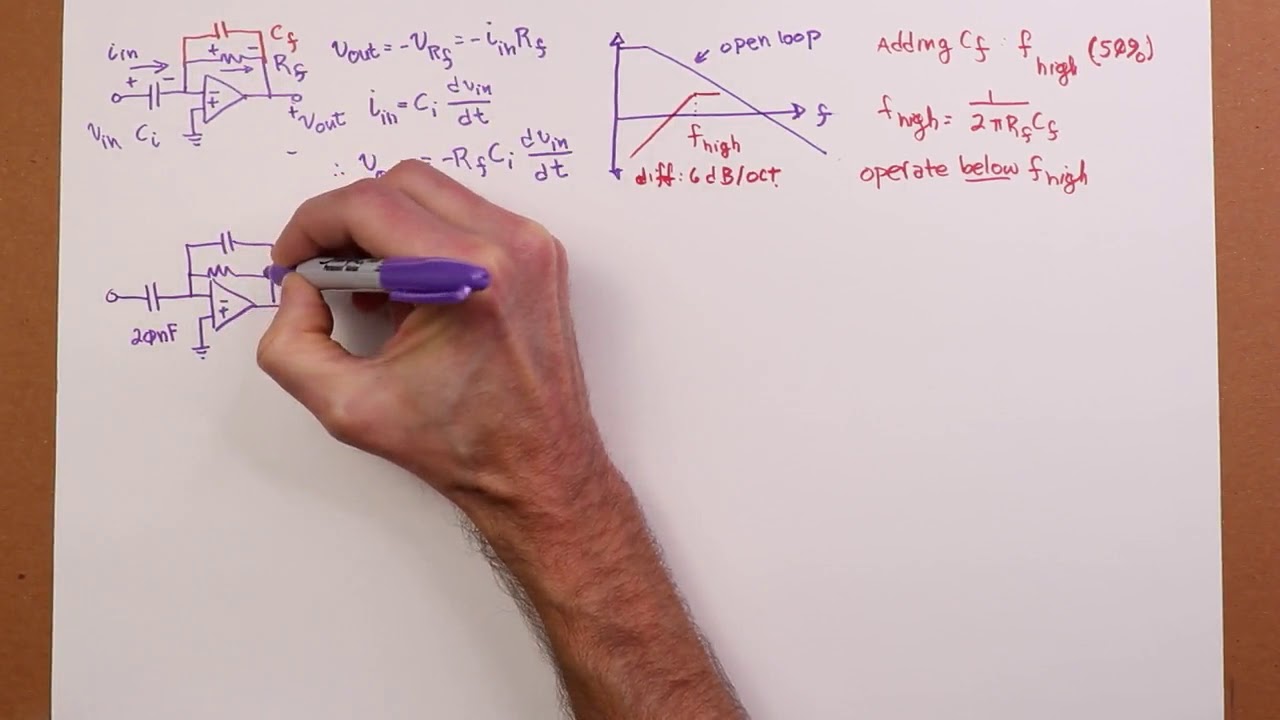 i_in C_f
+ − R_f
+ −
− +
v_in C_i + v_out −
v_out = -v_Rf = -i_in R_f
i_in = C_i dv_in/dt
∴ v_o = -R_f C_i dv_in/dt
open loop
f
f_high
diff: 6 dB/oct.
Adding C_f : f_high (50%)
f_high = 1/2πR_fC_f
operate below f_high
− +
20nF